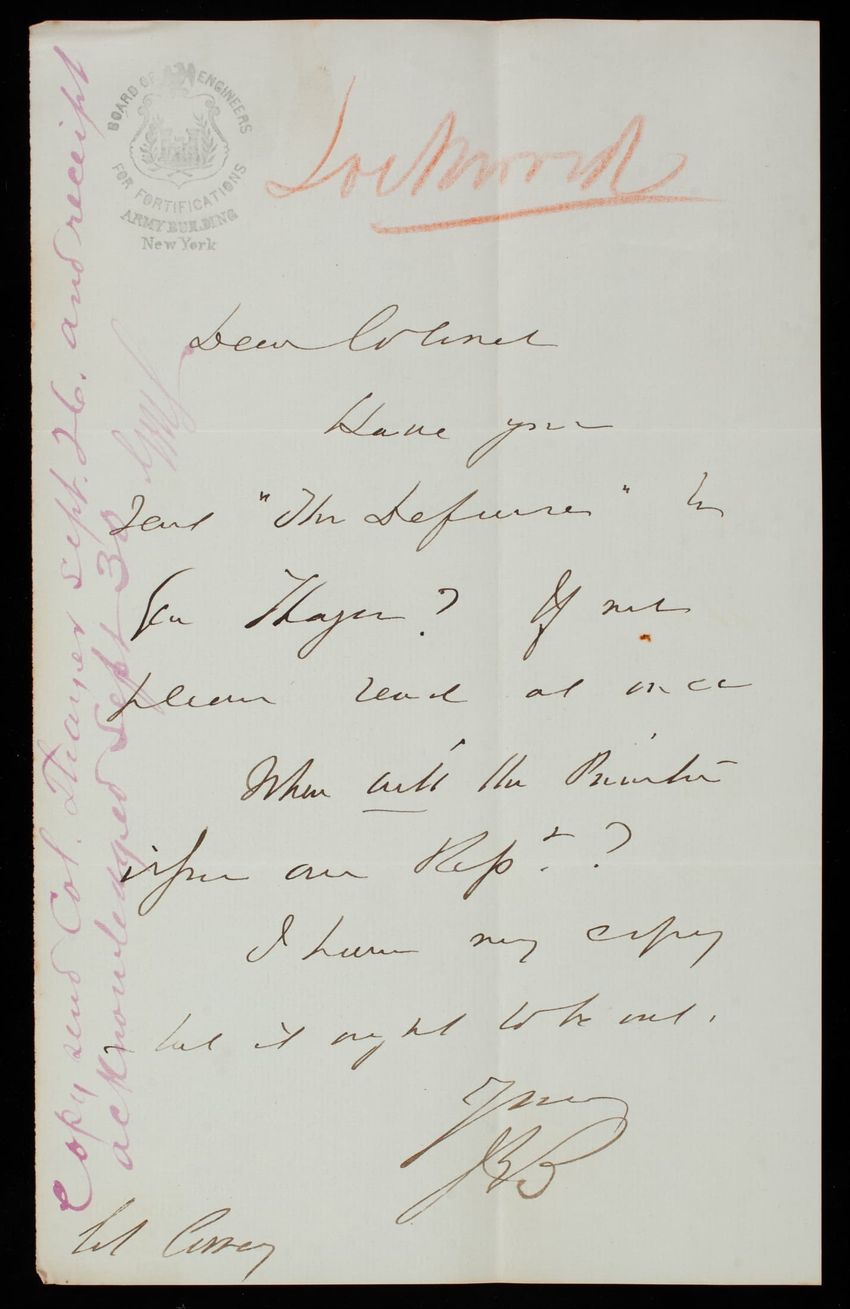 BOARD OF ENGINEERS
FOR FORTIFICATIONS
ARMY BUILDING
New York
Dear Colonel
Have you
send "The Defenses" to
Gen Thayer? If not
please send at once
When will the Printer
issue our Rept.?
I have my copy
but it ought to be out.
Yours
Col Casey
Copy send Col. Thayer Sept. 26. and receipt
acknowledged Sept 30